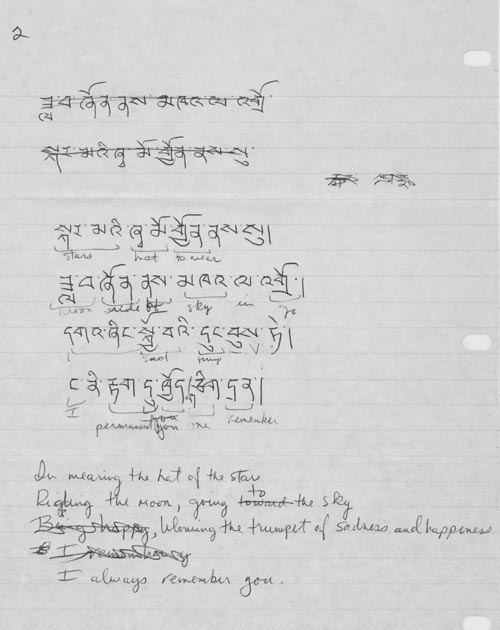 2
ཟླ་བ་ཞོན་ནས་མཁའ་ལ་འགྲོ
སྐར་མའི་ཞྭ་མོ་གྱོན་ནས་སུ
སྐར་མའི་ཞྭ་མོ་གྱོན་ནས་སུ།
stars hat to wear
ཟླ་བ་ཞོན་ནས་མཁའ་ལ་འགྲོ།
moon ride sky in go
དགའ་ཞིང་སྐྱོ་བའི་དུང་བུས་ཏེ།
sad trump V
ང་ནི་རྟག་དུ་ཁྱོད་གཅིག་དྲན།
I permanent you one remember
In wearing the hat of the stars
Riding the moon, going toward to the sky
Being happy, blowing the trumpet of sadness and happiness
I always remember you.